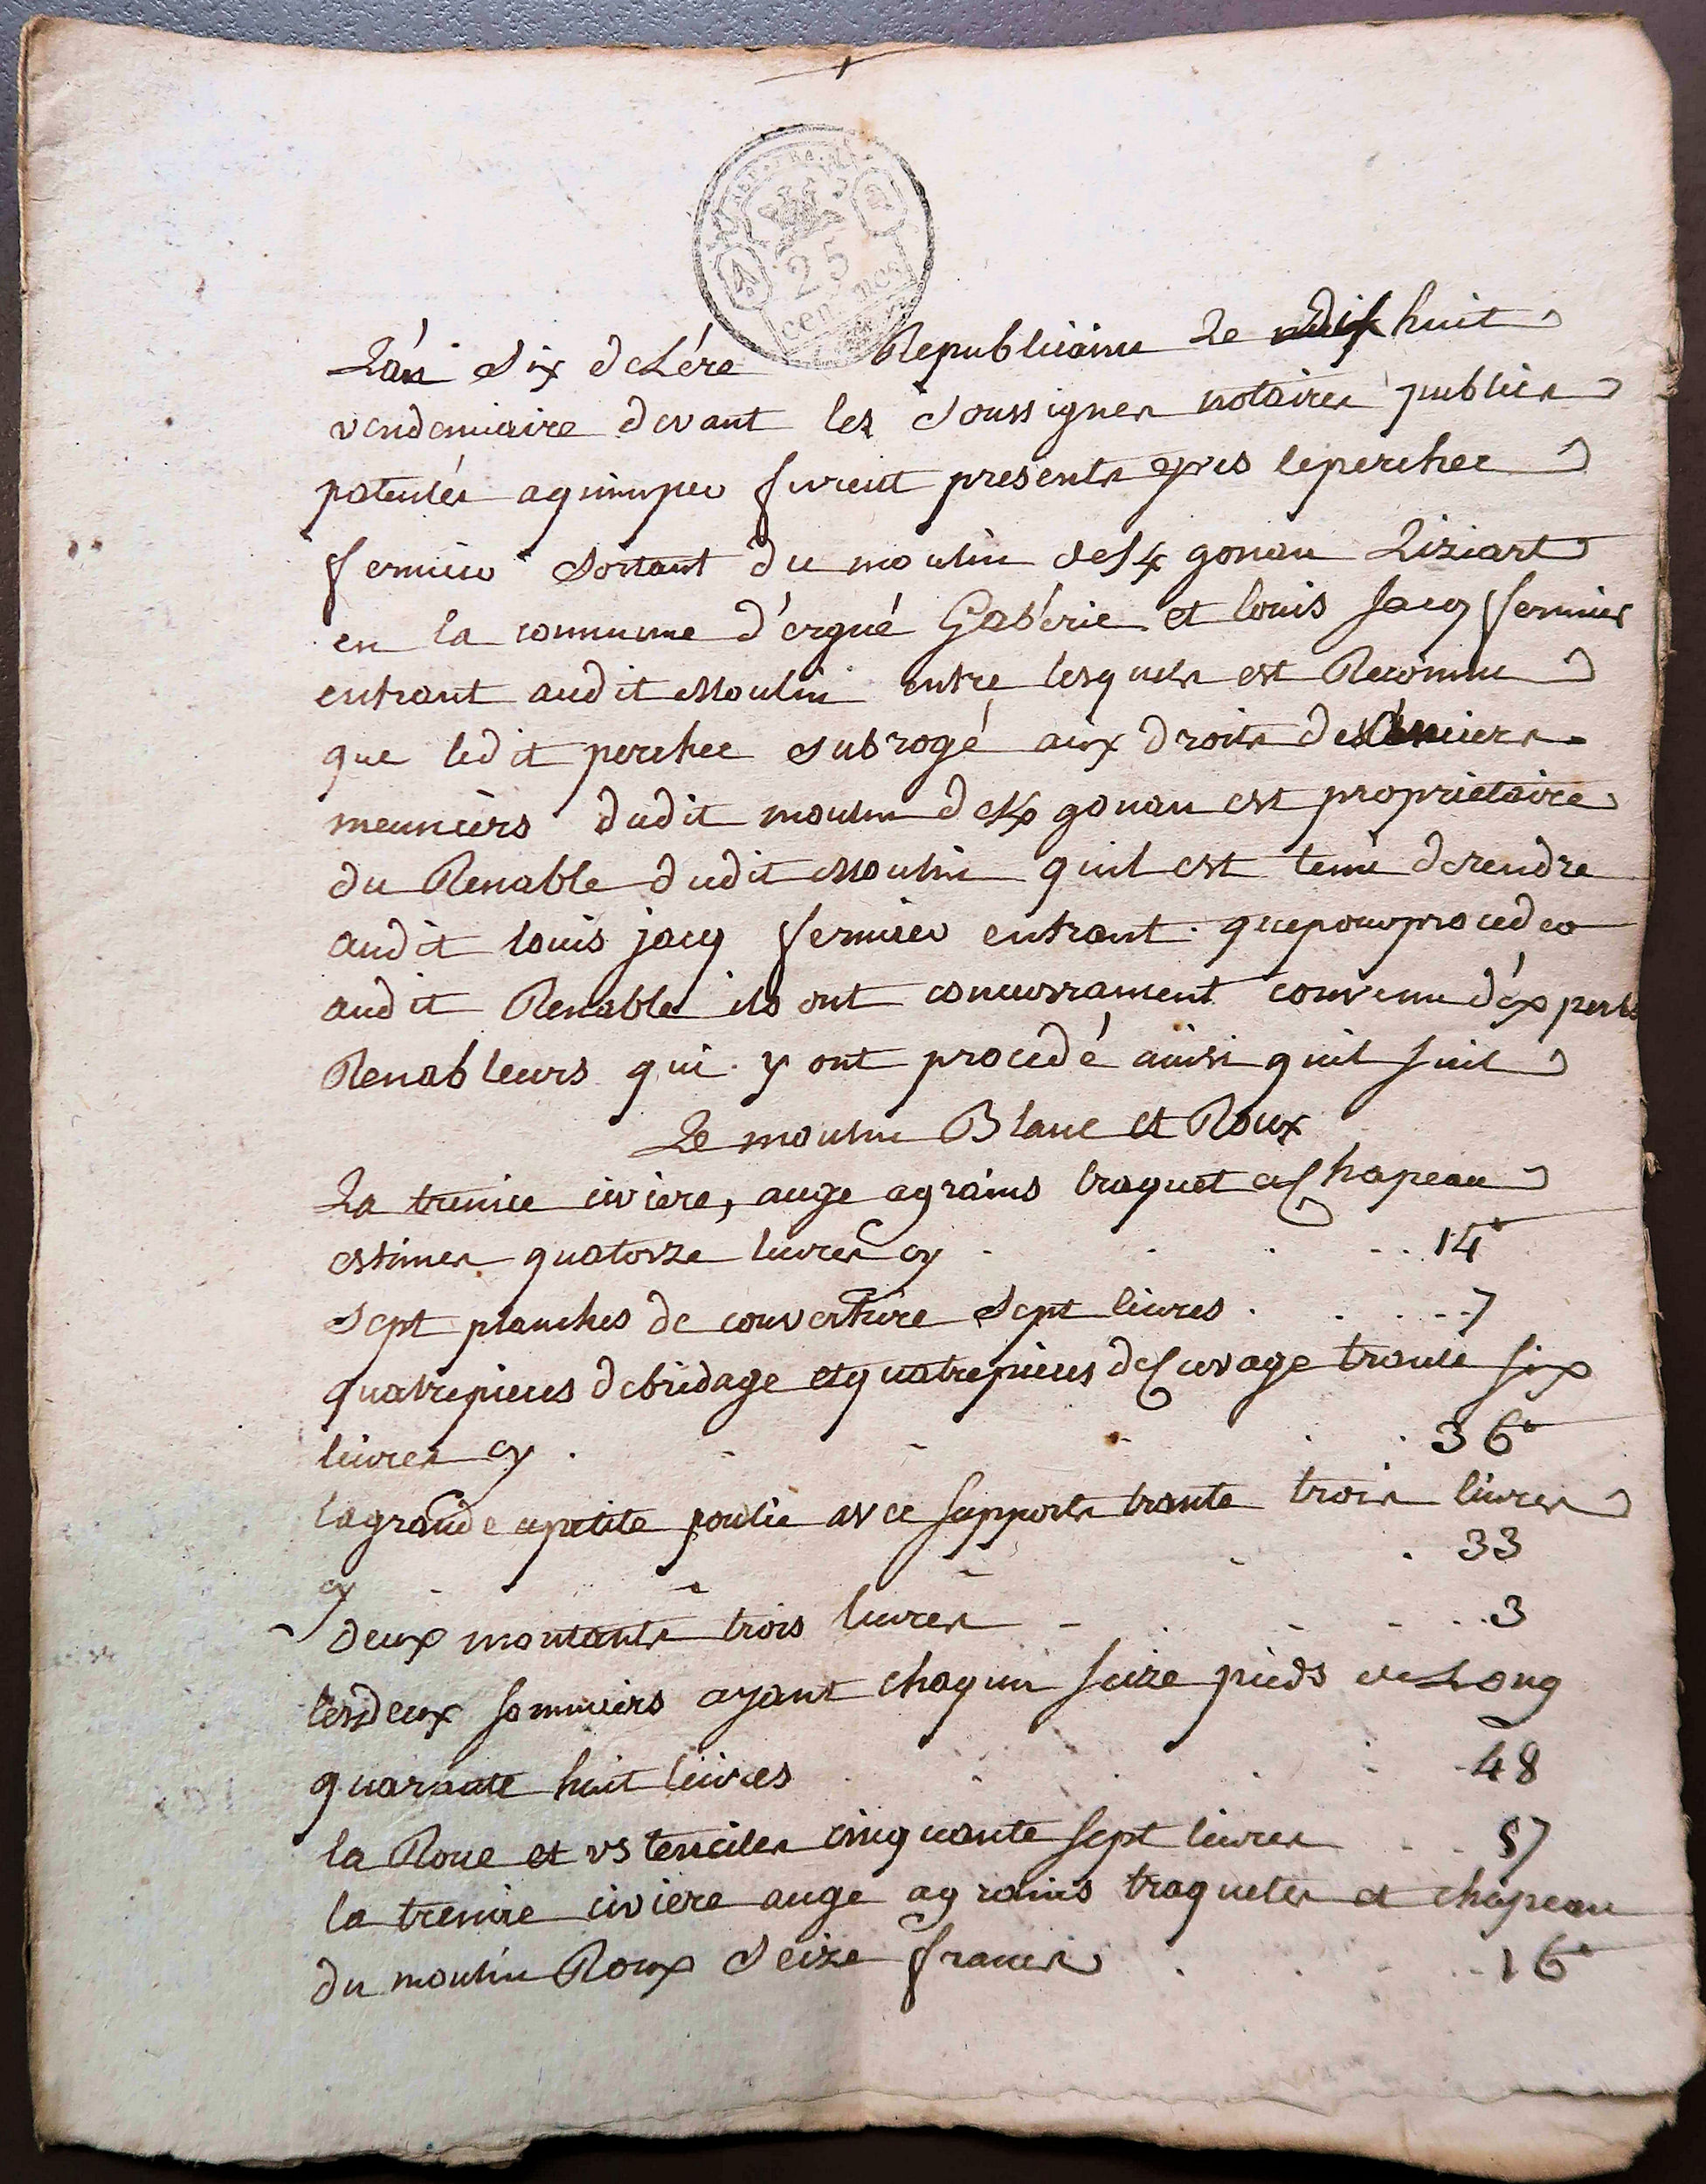 25
centimes
L'an dix de L'ére Republicaine Le dix huit
vendemiaire devant les soussignes notaires publics
patentés a quimper furent presents yves le perchec
fermier sortant du moulin de K gonan Liziart
en la commune d'ergué Gabéric et louis Jacq fermier
entrant audit Moulin entre lesquels est Reconnu
que ledit perchec subrogé aux droits des
meuniérs dudit moulin de K gonan est proprietaire
du Renable dudit Moulin quil est tenu de rendre
audit louis jacq fermier entrant que pour proceder
audit Renable ils ont concurrament convenu d'éxperts
Renableurs qui y ont procedé ainsi quil suit
Le moulin Blanc et Roux
La tremie civiere, auge a grains traquet et chapeau
estimes quatorze livres cy 14
Sept planches de couverture Sept livres 7
quatre pieces de bridage et quatre pieces de cuvage trante six
livres cy 36
la grande et petite poulie avec supports trante trois livres
cy 33
deux montants trois livres 3
les deux sommiers ayant chaqun seize pieds de Long
quarante huit livres 48
la Roue et ustenciles cinquante sept livres 57
la tremie civiere auge a grains traquets et chapeau
du moulin Roux Seize francs 16